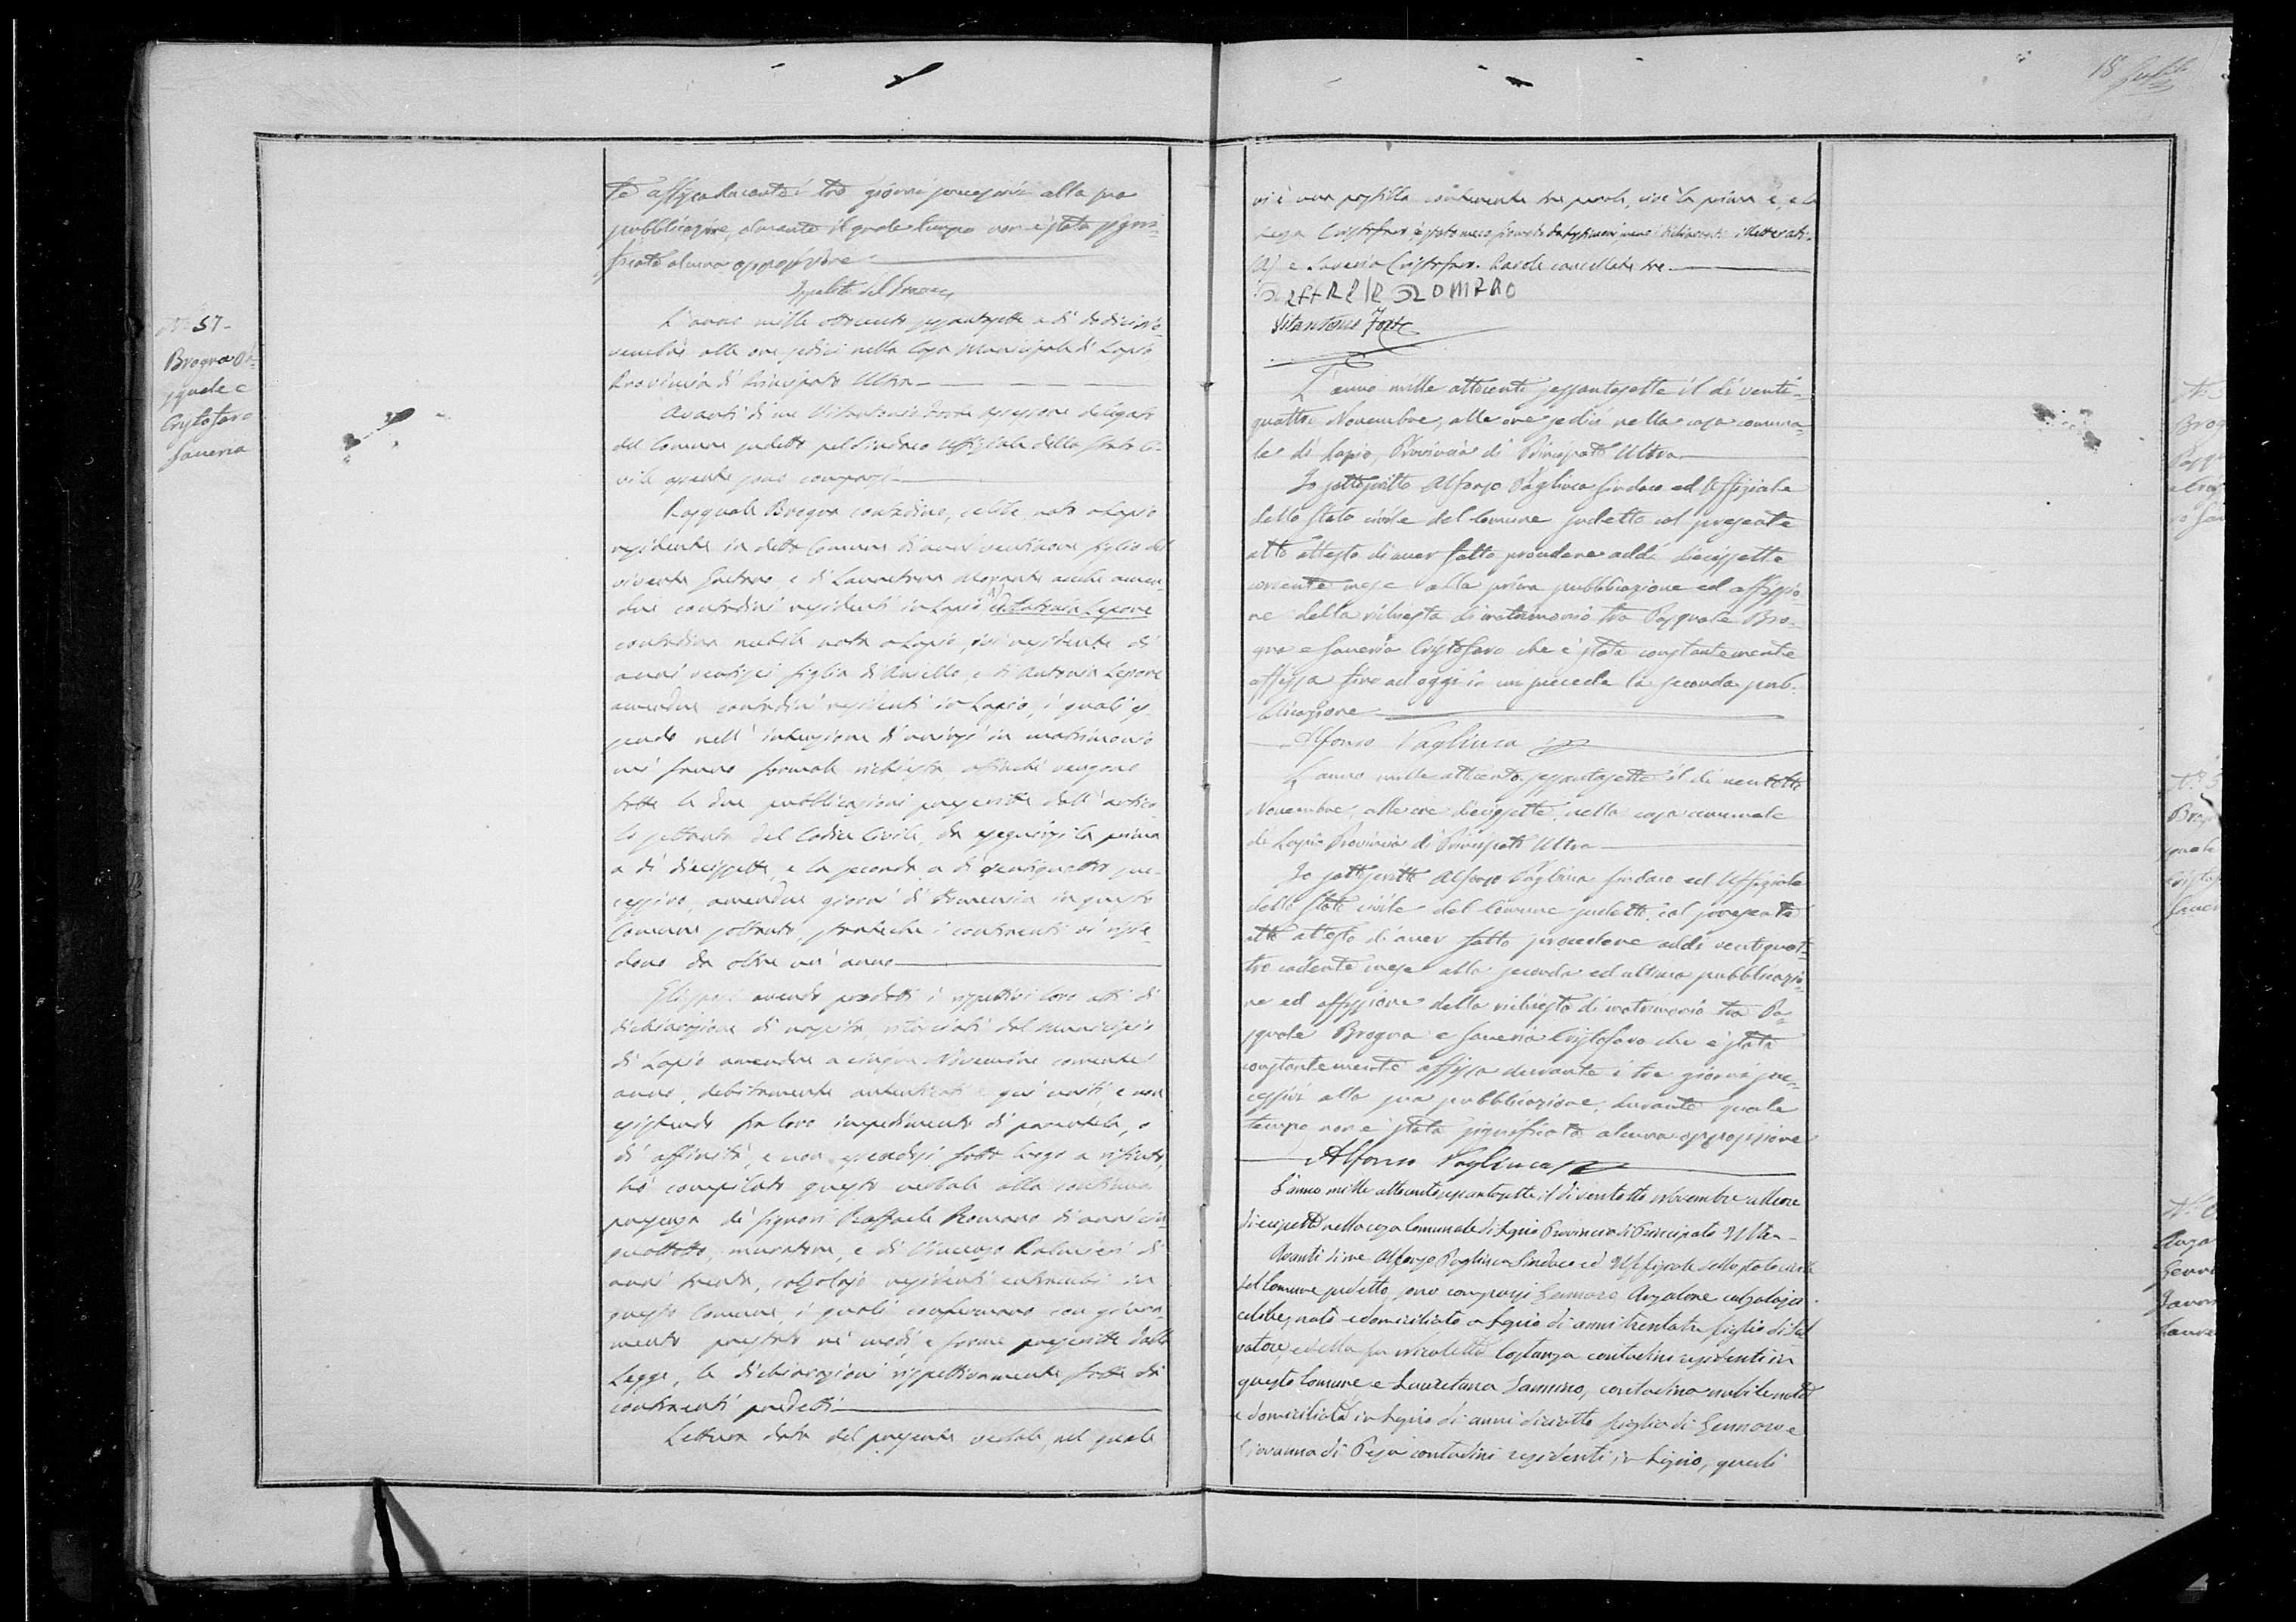 18
te affissa durante i tre giorni successivi alla sua
pubblicazione, durante il quale tempo non è stata signi-
ficata alcuna opposizione
N.° 57-
Brogna Pa-
squale e
Cristofaro
Saveria
L'anno mille ottocento sessantasette a dì dodici No-
vembre alle ore sedici nella Casa Municipale di Lapio
Provincia di Principato Ultra
Avanti di me Vitantonio Forte Assessore delegato
del Comune sudetto pel Sindaco Uffiziale dello Stato Ci-
vile sono comparsi
Pasquale Brogna contadino, celibe, nato a Lapio
residente in detto Comune di anni ventinove figlio del
vivente Gaetano e di Lauretana amen-
due contadini residenti in Lapio (A) ed Antonia Lepore
contadina nubile nata a Lapio, ivi residente di
anni ventisei figlia di Aniello e di Antonia Lepore
amendue contadini residenti in Lapio, i quali es-
sendo nell'intenzione di unirsi in matrimonio
mi fanno formale richiesta affinché vengano
fatte le due pubblicazioni prescritte dall'artico-
lo settanta del Codice Civile, da eseguirsi la prima
a dì diecissette, e la seconda a dì ventiquattro suc-
cessivo, amendue giorni di domenica in questo
Comune soltanto, stanteché i contraenti vi risie-
dono da oltre un'anno
Gli sposi avendo prodotti i rispettivi loro atti di
dichiarazione di nascita, rilasciati dal Municipio
di Lapio amendue a cinque Novembre corrente
anno, debitamente autenticati e qui uniti, e non
esistendo fra loro impedimento di parentela, o
di affinità, e non essendosi fatto luogo a rifiuto,
ho compilato questo verbale alla continua
presenza de' signori Raffaele Romano di anni cin-
quantotto, muratore, e di Vincenzo di
anni trenta, calzolajo residenti entrambi in
questo Comune, i quali confermano con giura-
mento prestato ne' modi e forme prescritte dalla
Legge, le dichiarazioni rispettivamente fatte da'
contraenti predetti
Lettura data del presente verbale, nel quale
vi è una postilla contenente tre parole, cioè la prima è, e la
terza Cristofaro è stato meco firmato illetterati.
(A) e Saveria Cristofaro. Parole cancellate tre
Vitantonio Forte
L'anno mille ottocento sessantasette il dì venti-
quattro Novembre, alle ore sedici nella casa comuna-
le di Lapio, Provincia di Principato Ultra
Io sottoscritto Alfonso Pagliuca Sindaco ed Uffiziale
dello Stato civile del Comune sudetto col presente
atto attesto di aver fatto procedere addì diecissette
corrente mese alla prima pubblicazione ed affissio-
ne della richiesta di matrimonio tra Pasquale Bro-
gna e Saveria Cristofaro che è stata constantemente
affissa fino ad oggi in cui precede la seconda pub-
blicazione
Alfonso Pagliuca
L'anno mille ottocento sessantasette il dì ventotto
Novembre, alle ore diecissette, nella casa comunale
di Lapio Provincia di Principato Ultra
Io sottoscritto Alfonso Pagliuca Sindaco ed Uffiziale
dello Stato civile del Comune sudetto, col presente
atto attesto di aver fatto procedere addì ventiquat-
tro cadente mese alla seconda ed ultima pubblicazio-
ne ed affissione della richiesta di matrimonio tra Pa-
squale Brogna e Saveria Cristofaro che è stata
constantemente affissa durante i tre giorni suc-
cessivi alla sua pubblicazione, durante quale
tempo non è stata significata alcuna opposizione
Alfonso Pagliuca
L'anno mille ottocento sessantasette il dì ventotto Novembre alle ore
diecissette nella casa Comunale di Lapio Provincia di Principato Ultra
Avanti di me Alfonso Pagliuca Sindaco ed Uffiziale dello stato civile
del Comune sudetto, sono comparsi Gennaro Anzalone calzolajo
celibe, nato e domiciliato a Lapio di anni trentatre figlio di Sal
vatore, e della fu Nicoletta Costanza contadini residenti in
questo Comune e Lauretana Iannino, contadina nubile nata
e domiciliata in Lapio di anni diciotto figlia di Gennaro e
Giovanna di Pesa contadini residenti in Lapio, quali